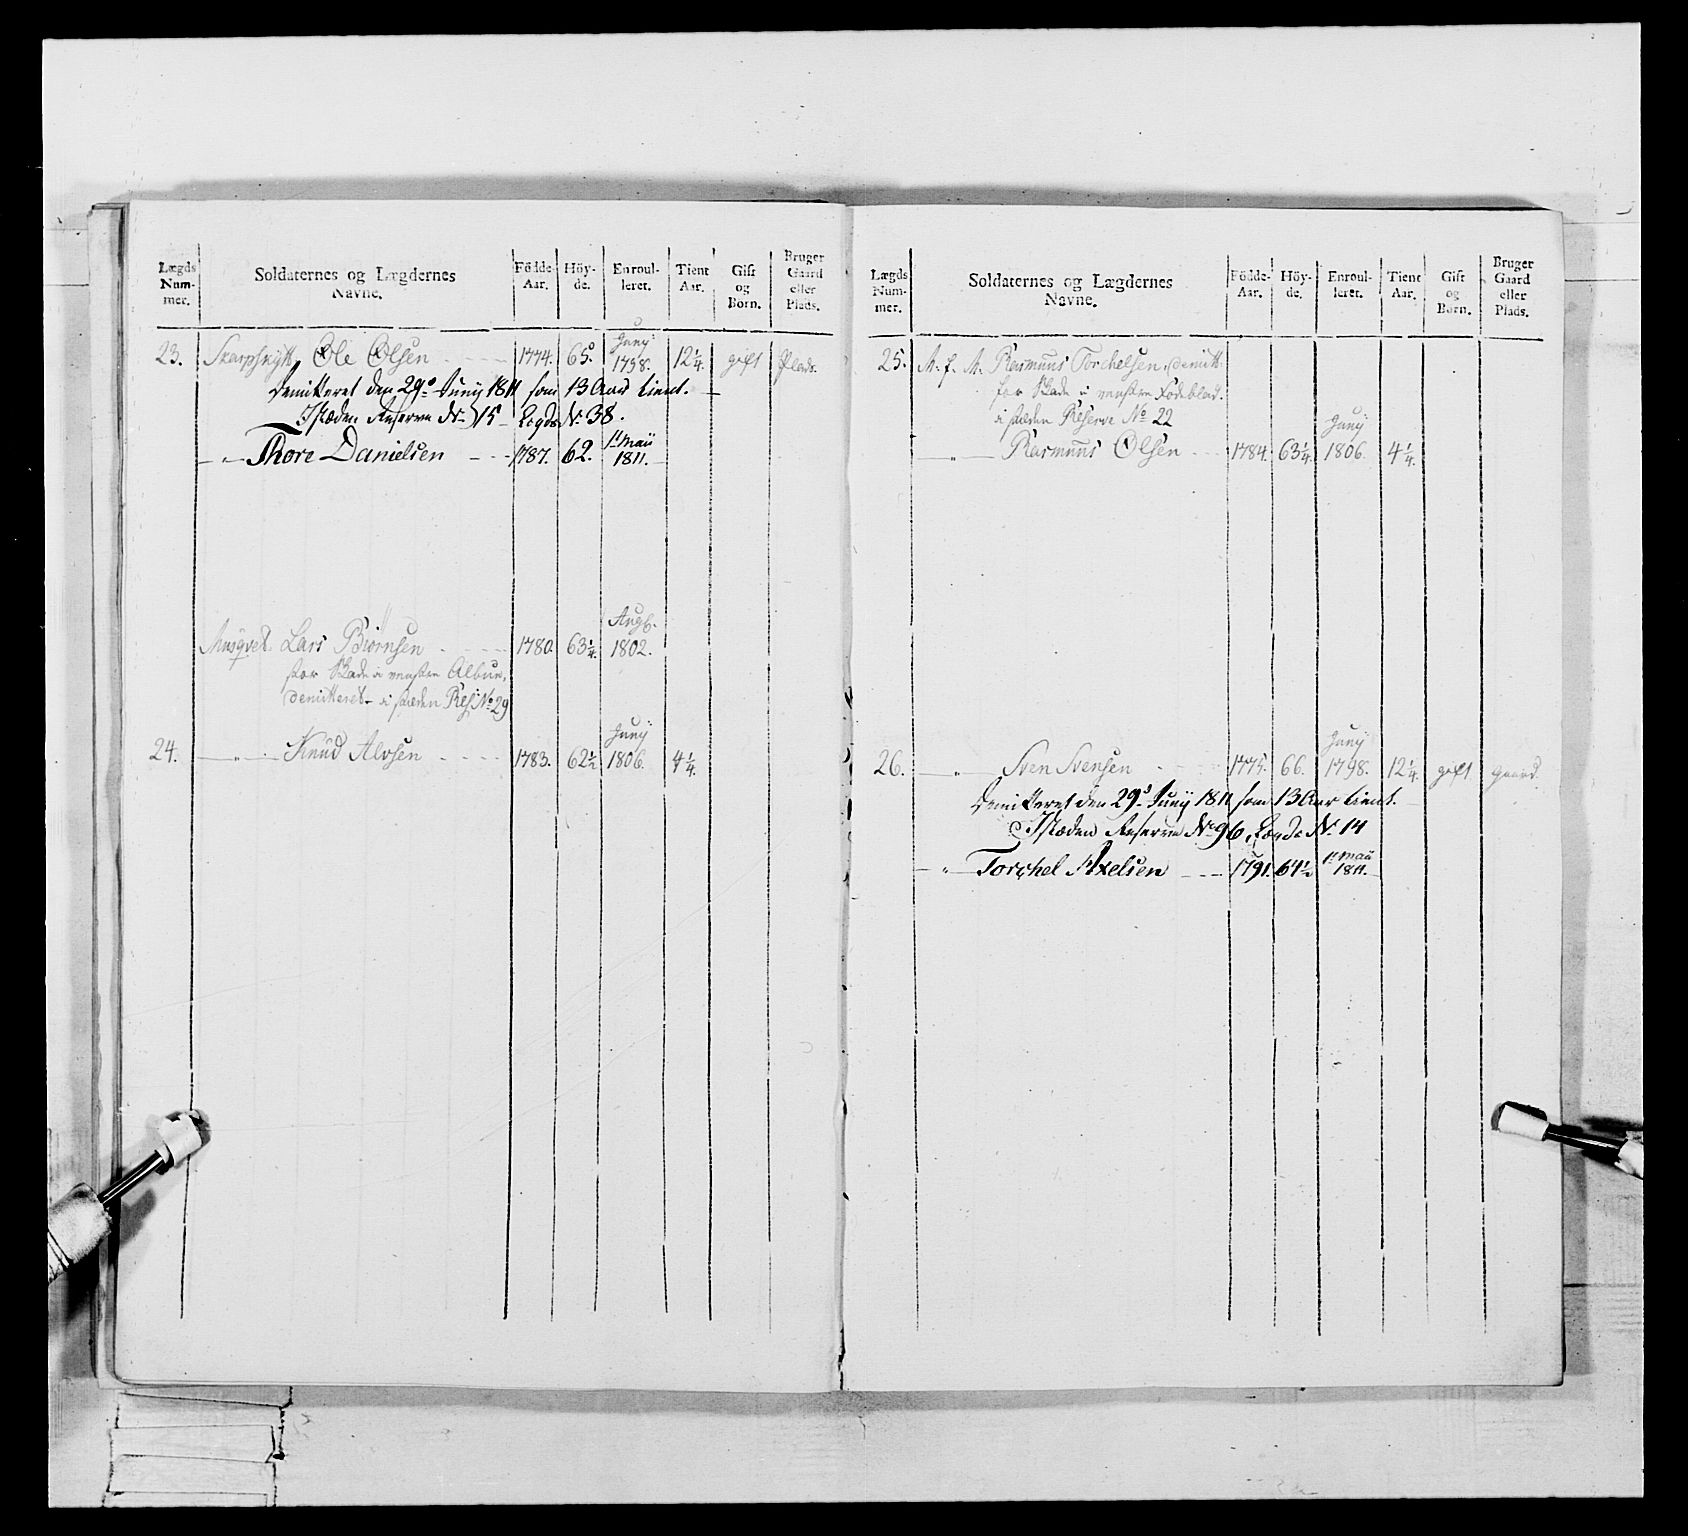 Lægds Num- mer. Soldaternes og Lægdernes Navne. Födde- Aar. Höy- de. Enroul- leret. Tient Aar. Gift og Børn. Bruger Gaard eller Plads.
23. Skarpskytt. Ole Olsen 1774. 65. Junÿ 1798. 12¼. gift Plads.
Demitteret den 29d Junÿ 1811 som 13 Aar tient.
I Stæden Reserve No 15 Lægds No 38.
Thore Danielsen 1787. 62. 1t Maÿ 1811.
Musqvet. Lars Biörnsen 1780. 63¼. Aug. 1802.
for Skade i venstre Albue,
demitteret i stæden Res. No 29
24. Knud Alvsen 1783. 62½ Junÿ 1806. 4¼.
Lægds Num- mer. Soldaternes og Lægdernes Navne. Födde- Aar. Höy- de. Enroul- leret. Tient Aar. Gift og Børn. Bruger Gaard eller Plads.
25. Rasmuus Torchelsen, demitt.
for Skade i venstre Fodeblad.
i stæden Reserve No 22
Rasmuus Olsen 1784. 63¼ Junÿ 1806. 4¼.
26. Sven Svensen 1775. 66. Junÿ 1798. 12¼. gift gaard.
Demitteret den 29d Junÿ 1811 som 13 Aar tient.
I Stæden Reserve No 96, Lægds No 14
Torchel Axelsen 1791. 64½ 1t Maÿ 1811.